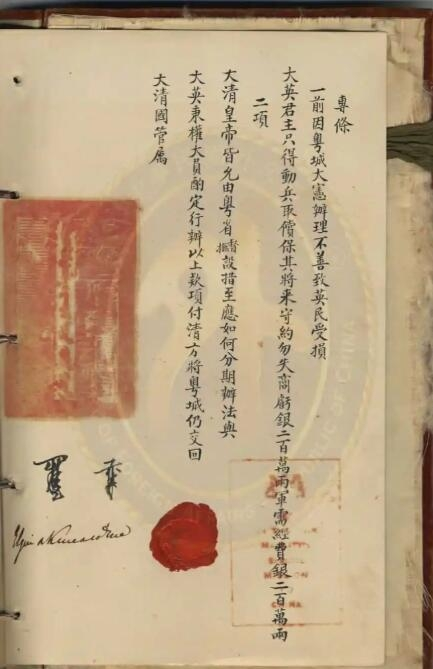 專條
一前因粵城大憲辦理不善致英民受損
大英君主只得動兵取償保其將來守約勿失商虧銀二百萬兩軍需經費銀二百萬兩
二項
大清皇帝皆允由粵省督撫設措至應如何分期辦法與
大英秉權大員酌定行辦以上款項付清方將粵城仍交回
大清國管屬
Elgin & Kincardine